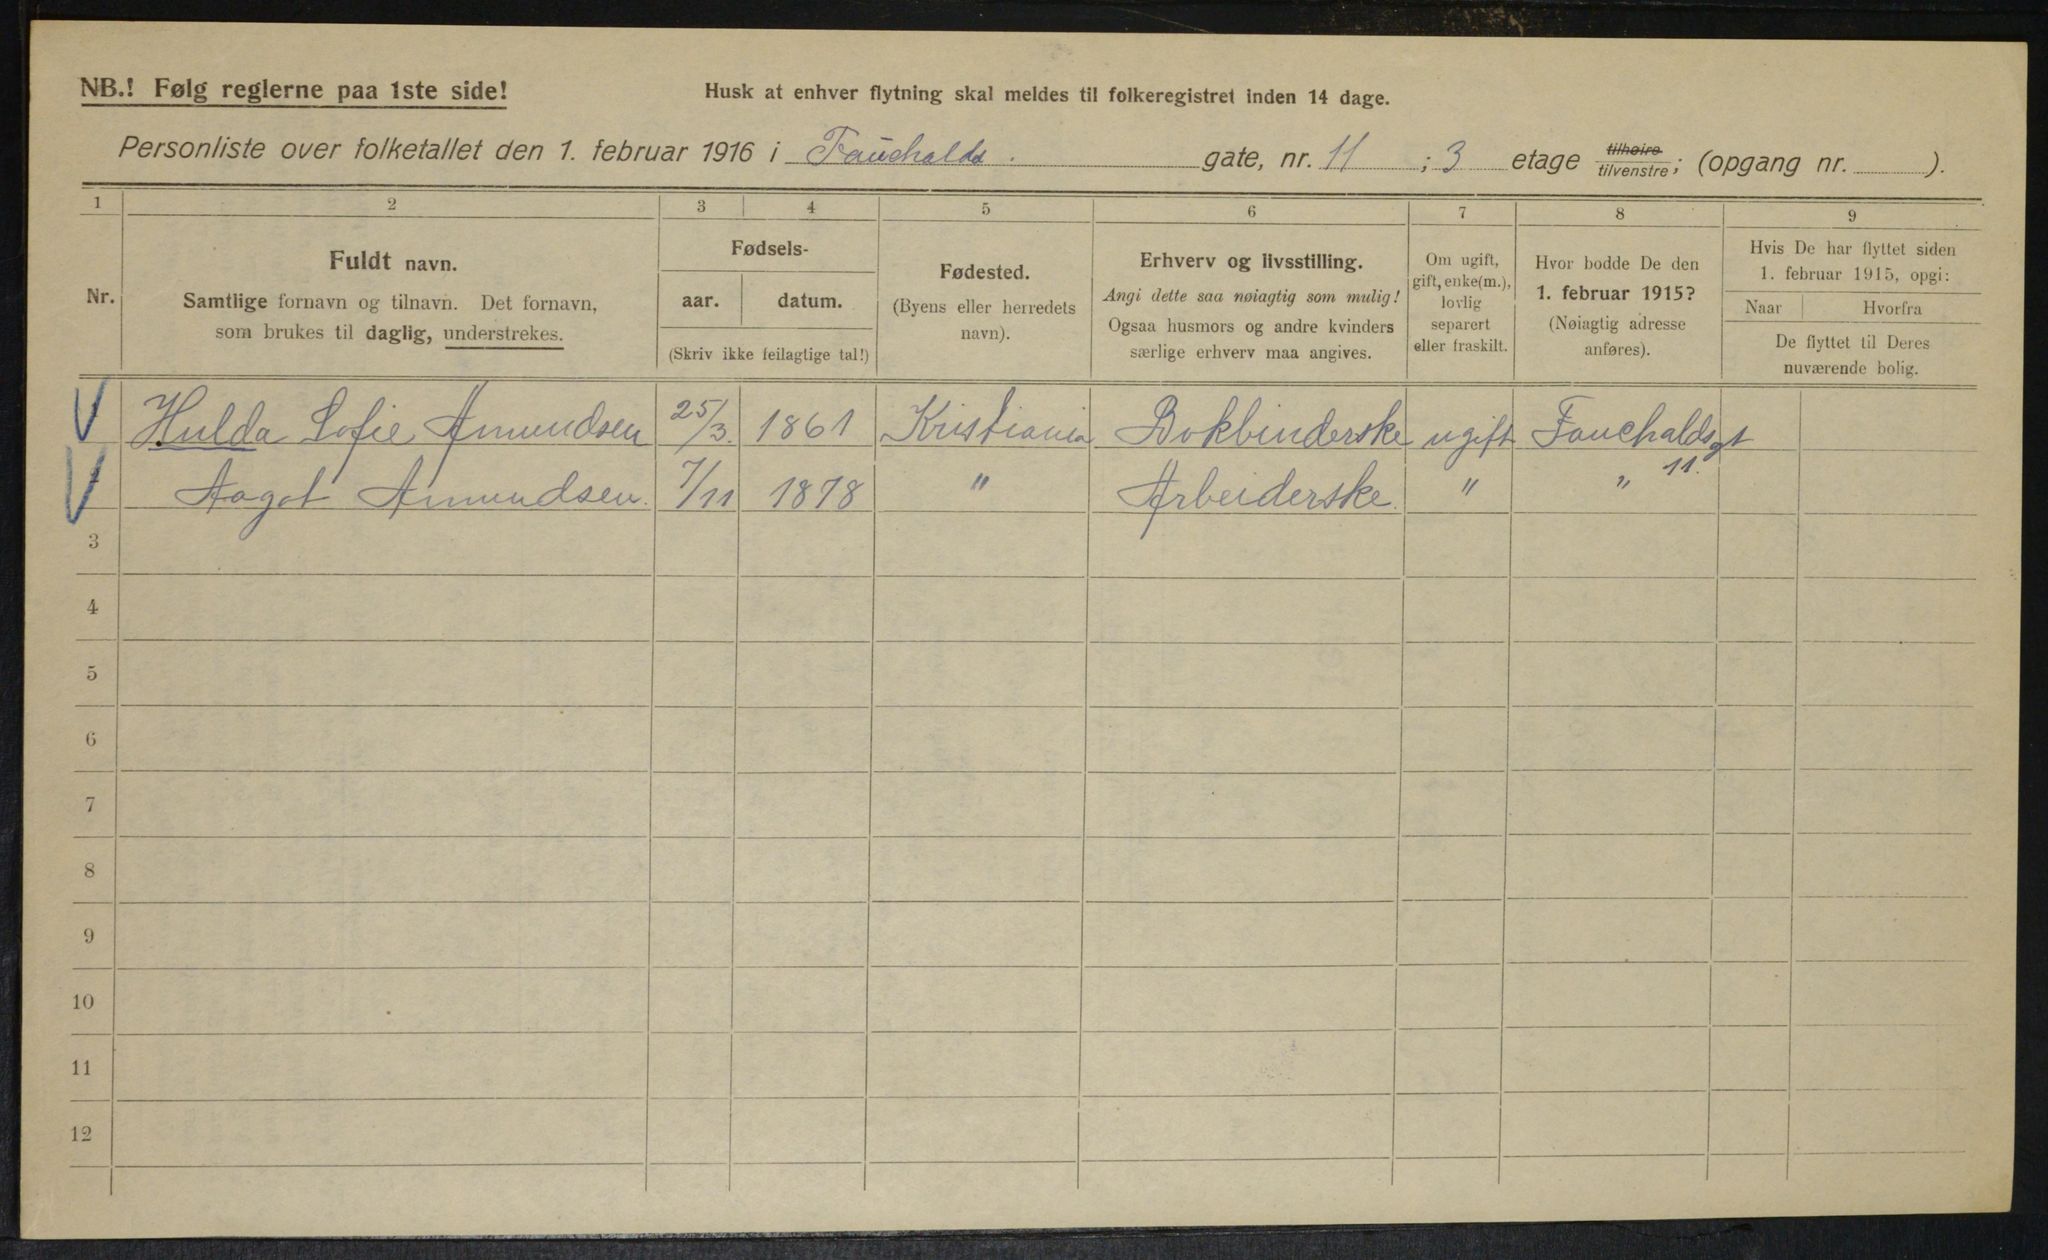 NB.! Følg reglerne paa 1ste side!
Husk at enhver flytning skal meldes til folkeregistret inden 14 dage.
Personliste over folketallet den 1. februar 1916 i Fauchalds gate, nr. 11 ; 3 etage tilhøire tilvenstre; (opgang nr. ).
1 2 3 4 5 6 7 8 9
Nr.
Fuldt navn.
Samtlige fornavn og tilnavn. Det fornavn,
som brukes til daglig, understrekes.
Fødsels-
aar. datum.
(Skriv ikke feilagtige tal!)
Fødested.
(Byens eller herredets
navn).
Erhverv og livsstilling.
Angi dette saa nøiagtig som mulig!
Ogsaa husmors og andre kvinders
særlige erhverv maa angives.
Om ugift,
gift, enke(m.),
lovlig
separert
eller fraskilt.
Hvor bodde De den
1. februar 1915?
(Nøiagtig adresse
anføres).
Hvis De har flyttet siden
1. februar 1915, opgi:
Naar Hvorfra
De flyttet til Deres
nuværende bolig.
Hulda Sofie Amundsen 25/3. 1861 Kristiania Bokbinderske ugift Fauchaldsgt 11.
Aagot Amundsen. 7/11 1878 " Arbeiderske. " "
3
4
5
6
7
8
9
10
11
12